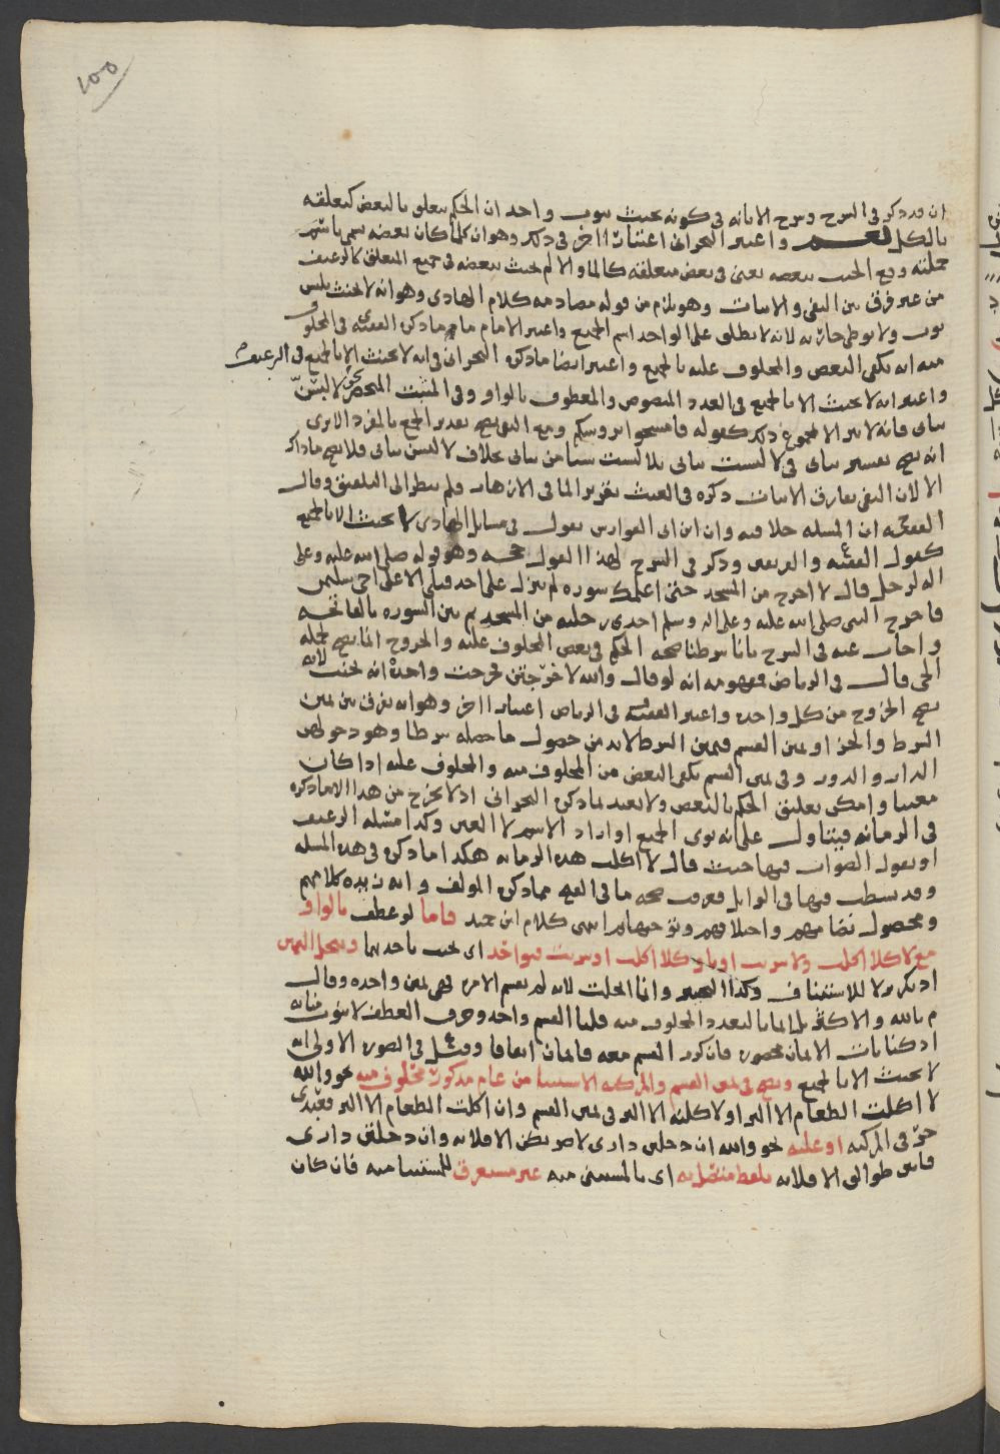 ١٥٥
ان قد ذكر في الشرح وشرح الابانه في كونه يحنث بثوب واحد ان الحكم يتعلق بالبعض كتعلقه
بالكل نعم واعتبر البحراني اعتبارا اخر في ذلك وهو ان كلما كان بعضه يسمى باسم
جملته وقع الحنث ببعضه يعني في بعض متعلقه كالما والا لم يحنث ببعضه في جميع المتعلق كالرغيف
من غير فرق بين النفي والاثبات وهو يلزم من قوله مصادمه كلام الهادي وهو انه لا يحنث بلبس
ثوب ولا بوطي جاريه لانه لا يطلق على الواحد اسم الجميع واعتبر الامام ما ذكره الفقيه في المحلوف
منه انه يكفي البعض والمحلوف عليه بالجميع واعتبر ايضا ما ذكره البحراني في انه لا يحنث الا بالجميع في الرغيف
واعتبر انه لا يحنث الا بالجميع في العدد المنصوص والمعطوف بالواو وفي المثبت المنحصر نحو لالبسن
ثيابي فانه لا يبر الا بمجموع ذلك كقوله فامسحوا بروسكم ومع النفي يصح تقدير الجمع بالمفرد الا ترى
انه يصح تفسير ثيابي في لا لبست ثيابي بلا لبست شيا من ثيابي بخلاف لالبسن ثيابي فلا يصح ما ذاك
الا لان النفي يفارق الاثبات ذكره في الغيث بقريب الما في الازهار ولم ينظر الى التلفيق وقال
الفقيه ان المسله خلافيه وان ابن ابي الفوارس يقول في مسايل الهادي لا يحنث الا بالجميع
كقول الفقيه والفريقين وذكر في الشرح لهذا القول حجه وهو قوله صلى الله عليه وعلى
اله لرجل قال لا اخرج من المسجد حتى اعلمك سوره لم ينزل على احد قبلي الا على اخي سليمن
فاخرج النبي صلى الله عليه وعلى اله وسلم احدى رجليه من المسجد ثم بين السوره بالفاتحه
واجاب عنه في الشرح بانا شرطنا صحه الحكم في بعض المحلوف عليه والخروج انما يصح بجمله
الحي قال في الرياض فمفهومه انه لو قال والله لا خرجتن فخرجت واحدة انه يحنث لانه
يصح الخروج من كل واحده واعتبر الفقيه في الرياض اعتبارا اخر وهو انه يفرق بين يمين
الشرط والجزا ويمين القسم فيمين الشرط لا بد من حصول ما جعله شرطا وهو دخولهن
الدار والدور وفي يمين القسم يكفي البعض من المحلوف منه والمحلوف عليه اذا كان
معينا وامكن تعليق الحكم بالبعض ولا يعتد بما ذكره البحراني اذ لا يخرج من هذا الا ما ذكره
في الرمانه فيتناول على انه نوى الجميع او اراد الاسم لا العين وكذا مسله الرغيف
او نقول الصواب فيها حنث قال لا اكلت هذه الرمانه هكذا ما ذكره في هذه المسله
وقد بسطت فيها في الوابل فعرف صحه ما في الفتح مما ذكره المولف وانه زبده كلامهم
ومحصول نصاصهم واختلافهم وتوجيهاتهم انتهى كلام ابن حميد فاما لو عطف بالواو
مع لا كلا اكلت ولا شربت او باو كلا اكلت او شربت فبواحد اي يحنث باحدهما وتنحل اليمين
اذ تكرير لا للاستيناف وكذا التخيير وانما انحلت لانه لم يقسم الامره فهي يمين واحده وقال
م بالله والاكثر بل ايمانا لتعدد المحلوف منه قلنا القسم واحد وحرف العطف لا ينوب منابه
اذ كنايات الايمان محصوره فان كرر القسم معه فايمان اتفاقا وقيل في الصوره الاولى انه
لا يحنث الا بالجميع ويصح في يمين القسم والمركبه الاستثنا من عام مذكور محلوف منه نحو والله
لا اكلت الطعام الا البر او لا كلته الا البر في يمين القسم وان اكلت الطعام الا البر فعبدي
حر في المركبه او عليه نحو والله ان دخلتن داري لاضربنكن الا فلانه وان دخلتن داري
فانتن طوالق الا فلانه بلفظ متصل به اي بالمستثنى منه غير مستغرق للمستثنا منه فان كان